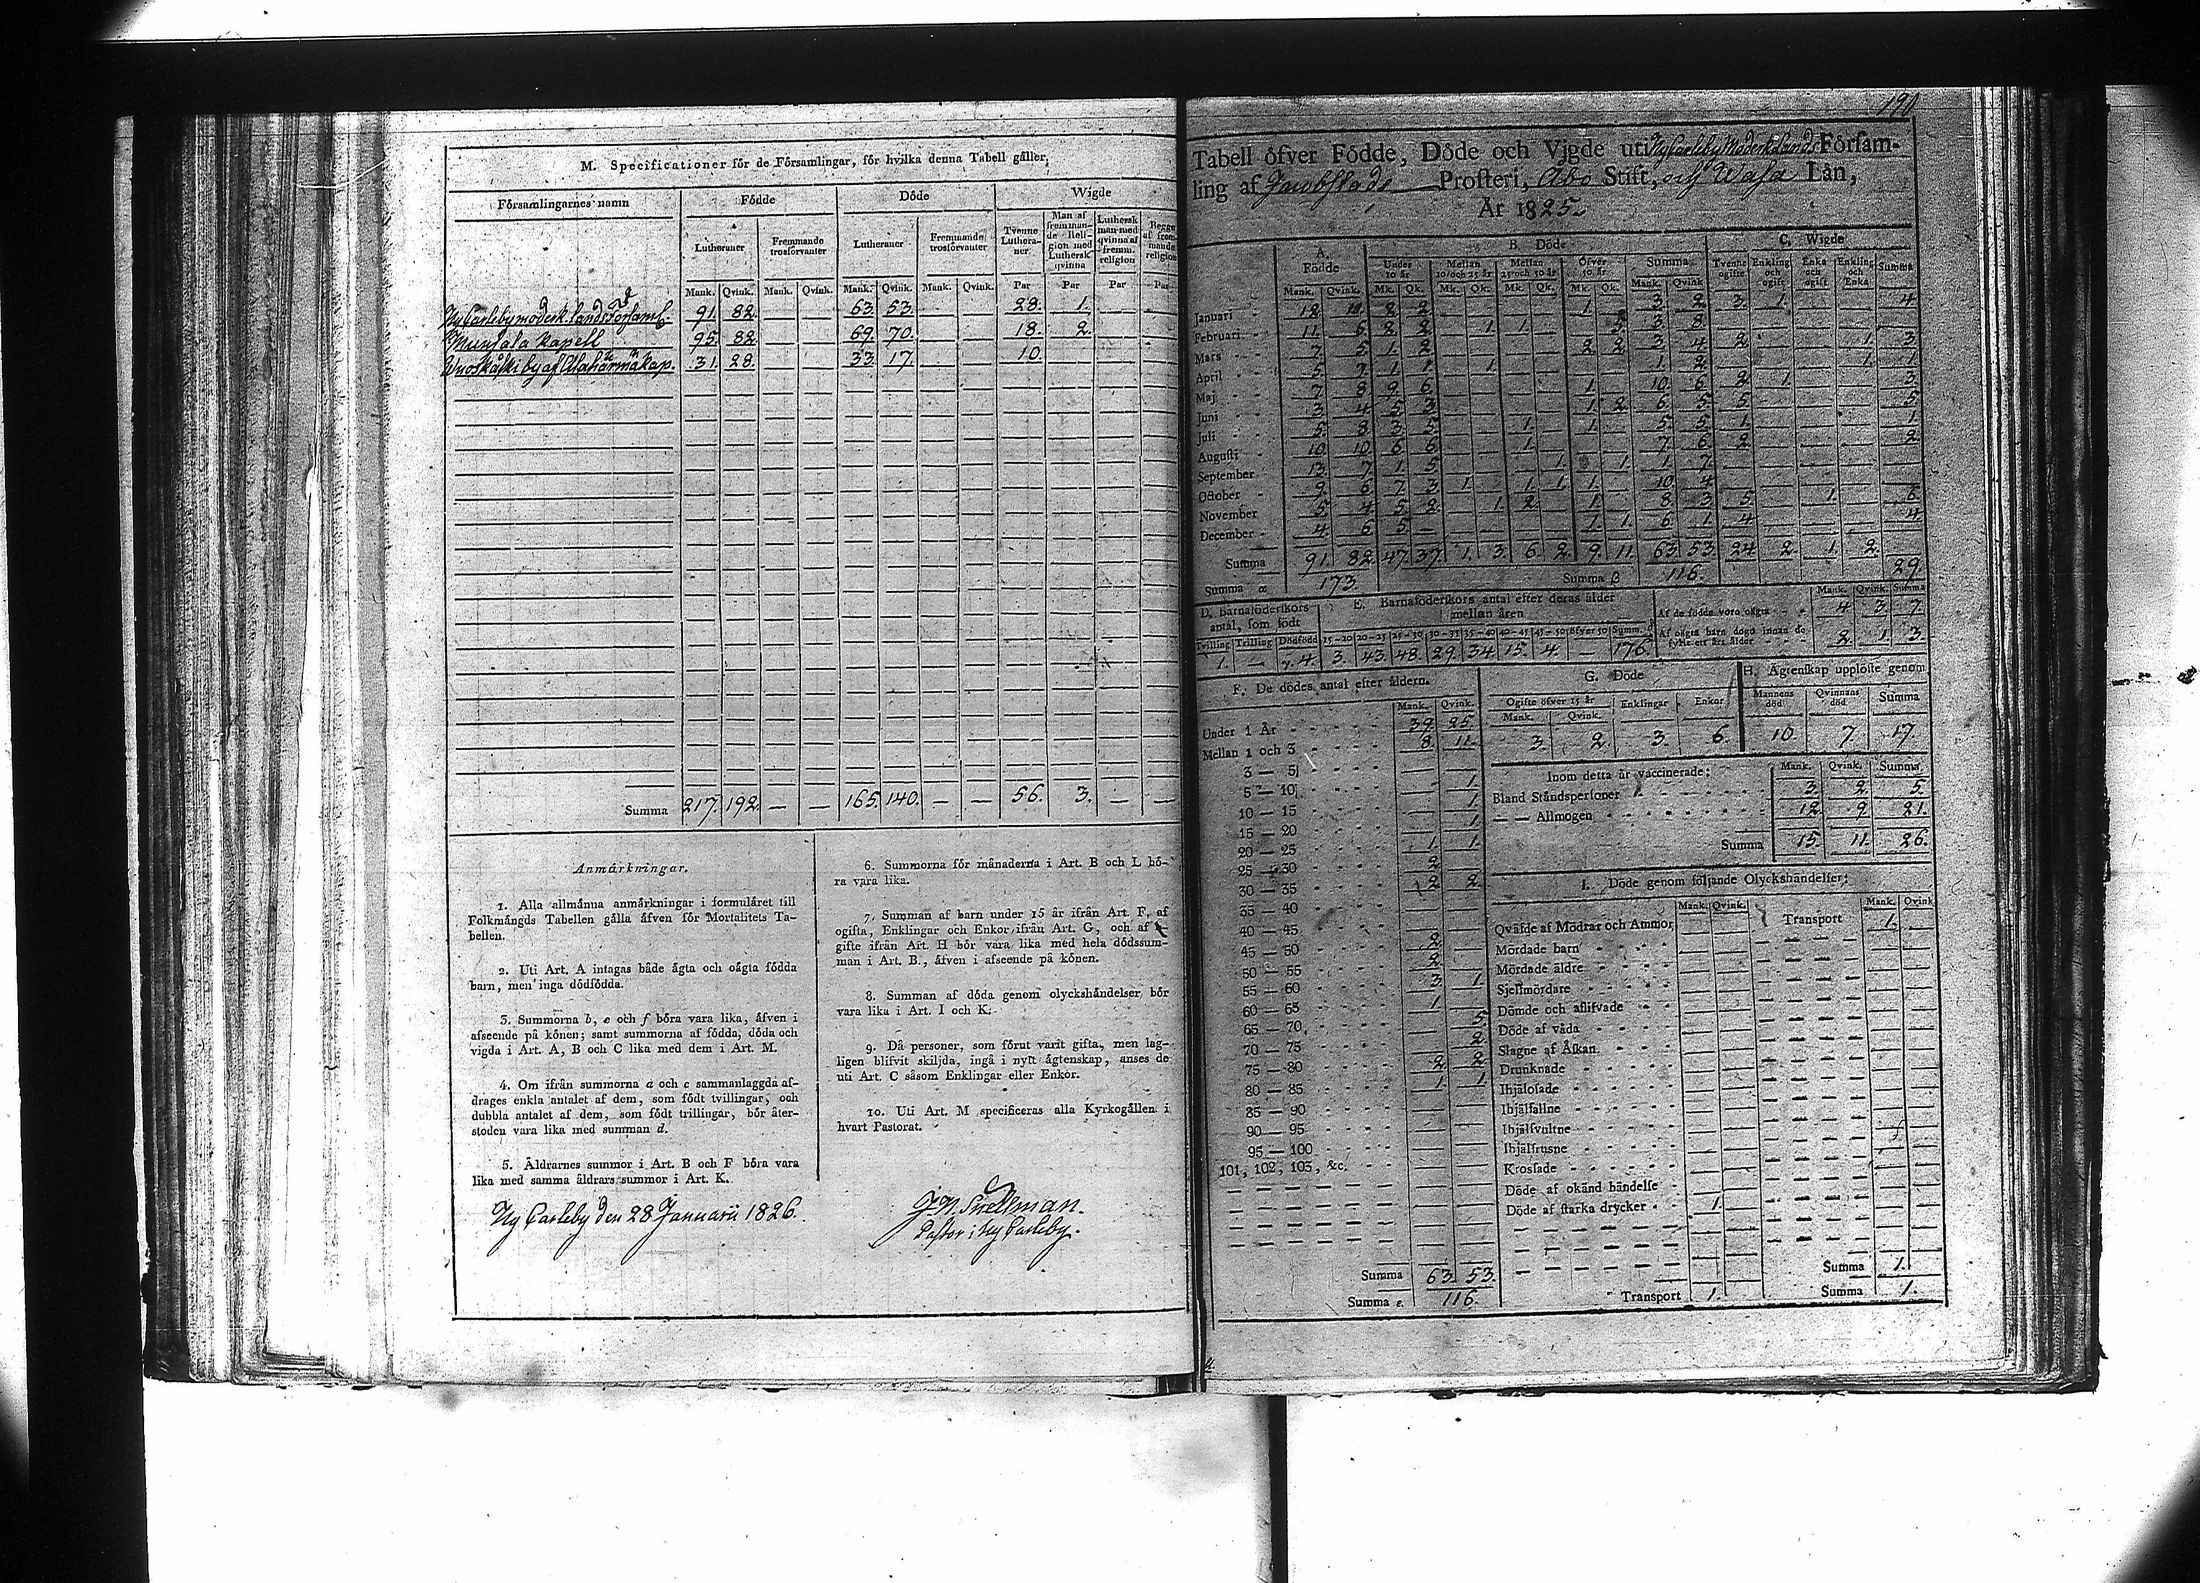 M. Specificationer för de Församlingar, för hvilka denna Tabell gäller,
Församlingarnes namn Födde Döde Wigde
Lutheraner Fremmande trosförvanter Lutheraner Fremmande trosförvanter Tvenne Lutheraner Man af fremmande Religion med Luthersk qvinna Luthersk man med qvinna af fremm. religion Begge af fremmande religion
Mank. Qvink. Mank. Qvink. Mank. Qvink. Mank. Qvink. Par Par Par Par
Ny Carleby moderk. landsförsaml. 91. 82. — — 63. 53. — — 28. 1. — —
Munsala Kapell 95. 82. — — 69. 70. — — 18. 2. — —
by af Alahärmä kap. 31. 28. — — 33. 17. — — 10. — — —
Summa 217. 192. — — 165. 140. — — 56. 3. — —
Anmärkningar.
1. Alla allmänna anmärkningar i formuläret till
Folkmängds Tabellen gälla äfven för Mortalitets Ta-
bellen.
2. Uti Art. A intagas både ägta och oägta födda
barn, men inga dödfödda.
3. Summorna b, e och f böra vara lika, äfven i
afseende på könen; samt summorna af födda, döda och
vigda i Art. A, B och C lika med dem i Art. M.
4. Om ifrån summorna a och c sammanlaggda af-
drages enkla antalet af dem, som födt tvillingar, och
dubbla antalet af dem, som födt trillingar, bör åter-
stoden vara lika med summan d.
5. Åldrarnes summor i Art. B och F böra vara
lika med samma åldrars summor i Art. K.
6. Summorna för månaderna i Art. B och L bö-
ra vara lika.
7. Summan af barn under 15 år ifrån Art. F, af
ogifta, Enklingar och Enkor ifrån Art. G, och af
gifte ifrån Art. H bör vara lika med hela dödssum-
man i Art. B., äfven i afseende på könen.
8. Summan af döda genom olyckshändelser bör
vara lika i Art. I och K.
9. Då personer, som förut varit gifta, men lag-
ligen blifvit skiljda, ingå i nytt ägtenskap, anses de
uti Art. C såsom Enklingar eller Enkor.
10. Uti Art. M specificeras alla Kyrkogällen i
hvart Pastorat.
Ny Carleby den 28 Januarii 1826.
J. N. Snellman.
Pastor i Ny Carleby.
191
Tabell öfver Födde, Döde och Vigde uti Ny Carleby Moderk. Lands Försam-
ling af Jacobstads Prosteri, Åbo Stift, och Wasa Län,
År 1825.
A. Födde B. Döde C. Wigde
Under 10 år Mellan 10 och 25 år Mellan 25 och 50 år Öfver 50 år Summa Tvenne ogifte Enkling och ogift Enka och ogift Enkling och Enka Summa
Mank. Qvink. Mk. Qk. Mk. Qk. Mk. Qk. Mk. Qk. Mank. Qvink.
Januari 12. 10. 2. 2. — — — — 1. — 3. 2. 3. 1. — — 4
Februari 11. 6. 2. 2. — 1. 1. — — 5. 3. 8. — — — — —
Mars 7. 5. 1. 2. — — — — 2. 2. 3. 4. 2. — — 1. 3.
April 5. 7. 1. 1. — 1. — — — — 1. 2. — — — 1. 1.
Maj 7. 8. 9. 6. — — — — 1. — 10. 6. 2. 1. — — 3.
Juni 3. 4. 5. 3. — — — — 1. 2. 6. 5. 5. — — — 5.
Juli 5. 8. 3. 5. — — 1. — 1. — 5. 5. 1. — — — 1.
Augusti 10. 10. 6. 6. — — 1. — — — 7. 6. 2. — — — 2.
September 13. 7. 1. 5. — — — 1. — 1. 1. 7. — — — — —
October 9. 6. 7. 3. 1. — 1. 1. 1. — 10. 4. — — — — —
November 5. 4. 5. 2. — 1. 2. — 1. — 8. 3. 5. — 1. — 6.
December 4. 6. 5. — — — — — 1. 1. 6. 1. 4. — — — 4
Summa 91. 82. 47. 37. 1. 3. 6. 2. 9. 11. 63. 53. 24. 2. 1. 2. 29.
Summa a 173. Summa β 116.
D. Barnaföderskors antal, som födt
Tvilling Trilling Dödfödd
1. — 4.
E. Barnaföderskors antal efter deras ålder mellan åren
15–20 20–25 25–30 30–35 35–40 40–45 45–50 öfver 50 Summ. d
3. 43. 48. 29. 34. 15. 4. — 176.
Mank. Qvink. Summa
Af de födde voro oägta 4 3 7.
Af oägta barn dogo innan de fyllt ett års ålder 2. 1. 3.
F. De dödes antal efter åldern.
Mank. Qvink.
Under 1 År 39. 25.
Mellan 1 och 3 8. 11.
3 — 5
5 — 10 1.
10 — 15 1.
15 — 20 1.
20 — 25 1. 1.
25 — 30 2.
30 — 35 2. 2.
35 — 40
40 — 45
45 — 50 2.
50 — 55 2.
55 — 60 3. 1.
60 — 65 1.
65 — 70 5.
70 — 75 2.
75 — 80 2. 2.
80 — 85 1. 1.
85 — 90
90 — 95
95 — 100
101, 102, 103, &c.
Summa 63. 53.
Summa e. 116.
G. Döde
Ogifte öfver 15 år Enklingar Enkor
Mank. Qvink.
3. 2. 3. 6.
H. Ägtenskap upplöste genom
Mannens död Qvinnans död Summa
10. 7. 17.
Inom detta år vaccinerade: Mank. Qvink. Summa
Bland Ståndspersoner 3. 2. 5.
— — Allmogen 12. 9. 21.
Summa 15. 11. 26.
I. Döde genom följande Olyckshändelser:
Mank. Qvink. Mank. Qvink
Qväfde af Mödrar och Ammor — — Transport 1. —
Mördade barn
Mördade äldre
Sjelfmördare
Dömde och aflifvade
Döde af våda
Slagne af Åskan
Drunknade
Ihjälosade
Ihjälfallne
Ihjälsvultne
Ihjälfrusne
Krossade
Döde af okänd händelse
Döde af starka drycker 1.
Summa 1.
Transport 1. Summa 1.